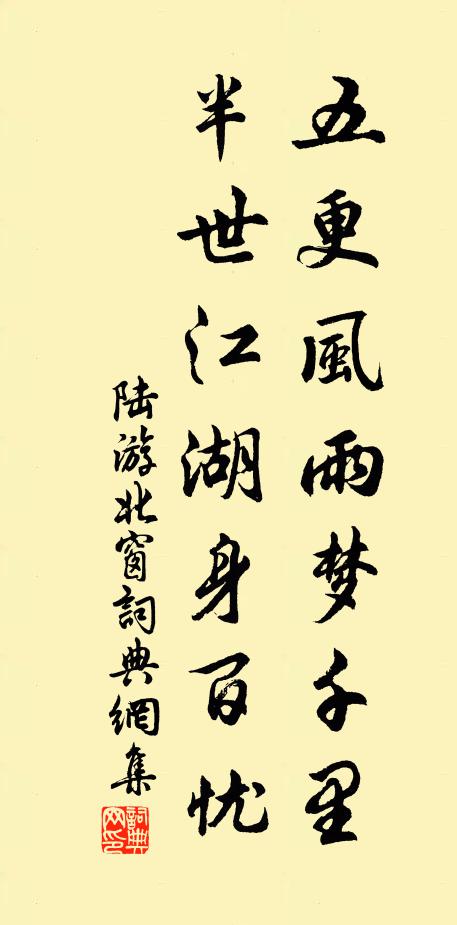 五更風雨梦千里
半世江湖身百忧
陆游北窗詞典網集
詞典網印